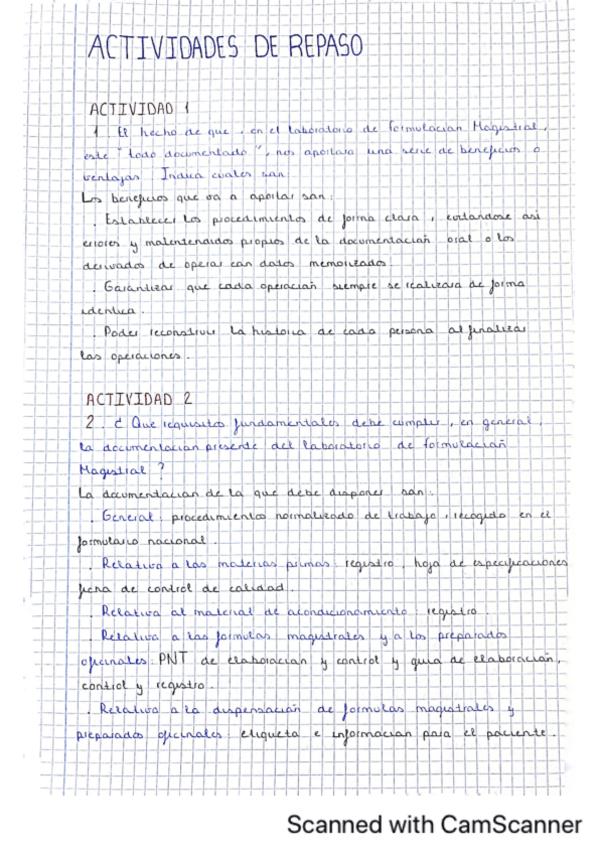 ACTIVIDADES DE REPASO
ACTIVIDAD 1
1. El hecho de que, en el laboratorio de formulacion Magistral,
este "todo documentado", nos aportara una serie de beneficios o
ventajas. Indica cuales son
Los beneficios que va a aportar son:
. Establecer los procedimientos de forma clara, evitandose asi
errores y malentendidos propios de la documentación oral o los
derivados de operar con datos memorizados.
. Garantizar que cada operación siempre se realizara de forma
identica.
. Poder reconstruir la historia de cada persona al finalizar
las operaciones.
ACTIVIDAD 2
2. ¿ Que requisitos fundamentales debe cumplir, en general,
la documentacion presente del laboratorio de formulación
Magistral ?
La documentacion de la que debe disponer son:
. General: procedimiento normalizado de trabajo, recogido en el
formulario nacional.
. Relativa a las materias primas: registro, hoja de especificaciones
ficha de control de calidad.
. Relativa al material de acondicionamiento: registro.
. Relativa a las formulas magistrales y a los preparados
oficinales: PNT de elaboracion y control y guia de elaboración,
control y registro.
. Relativa a la dispensación de formulas magistrales y
preparados oficinales: etiqueta e informacion para el paciente.
Scanned with CamScanner